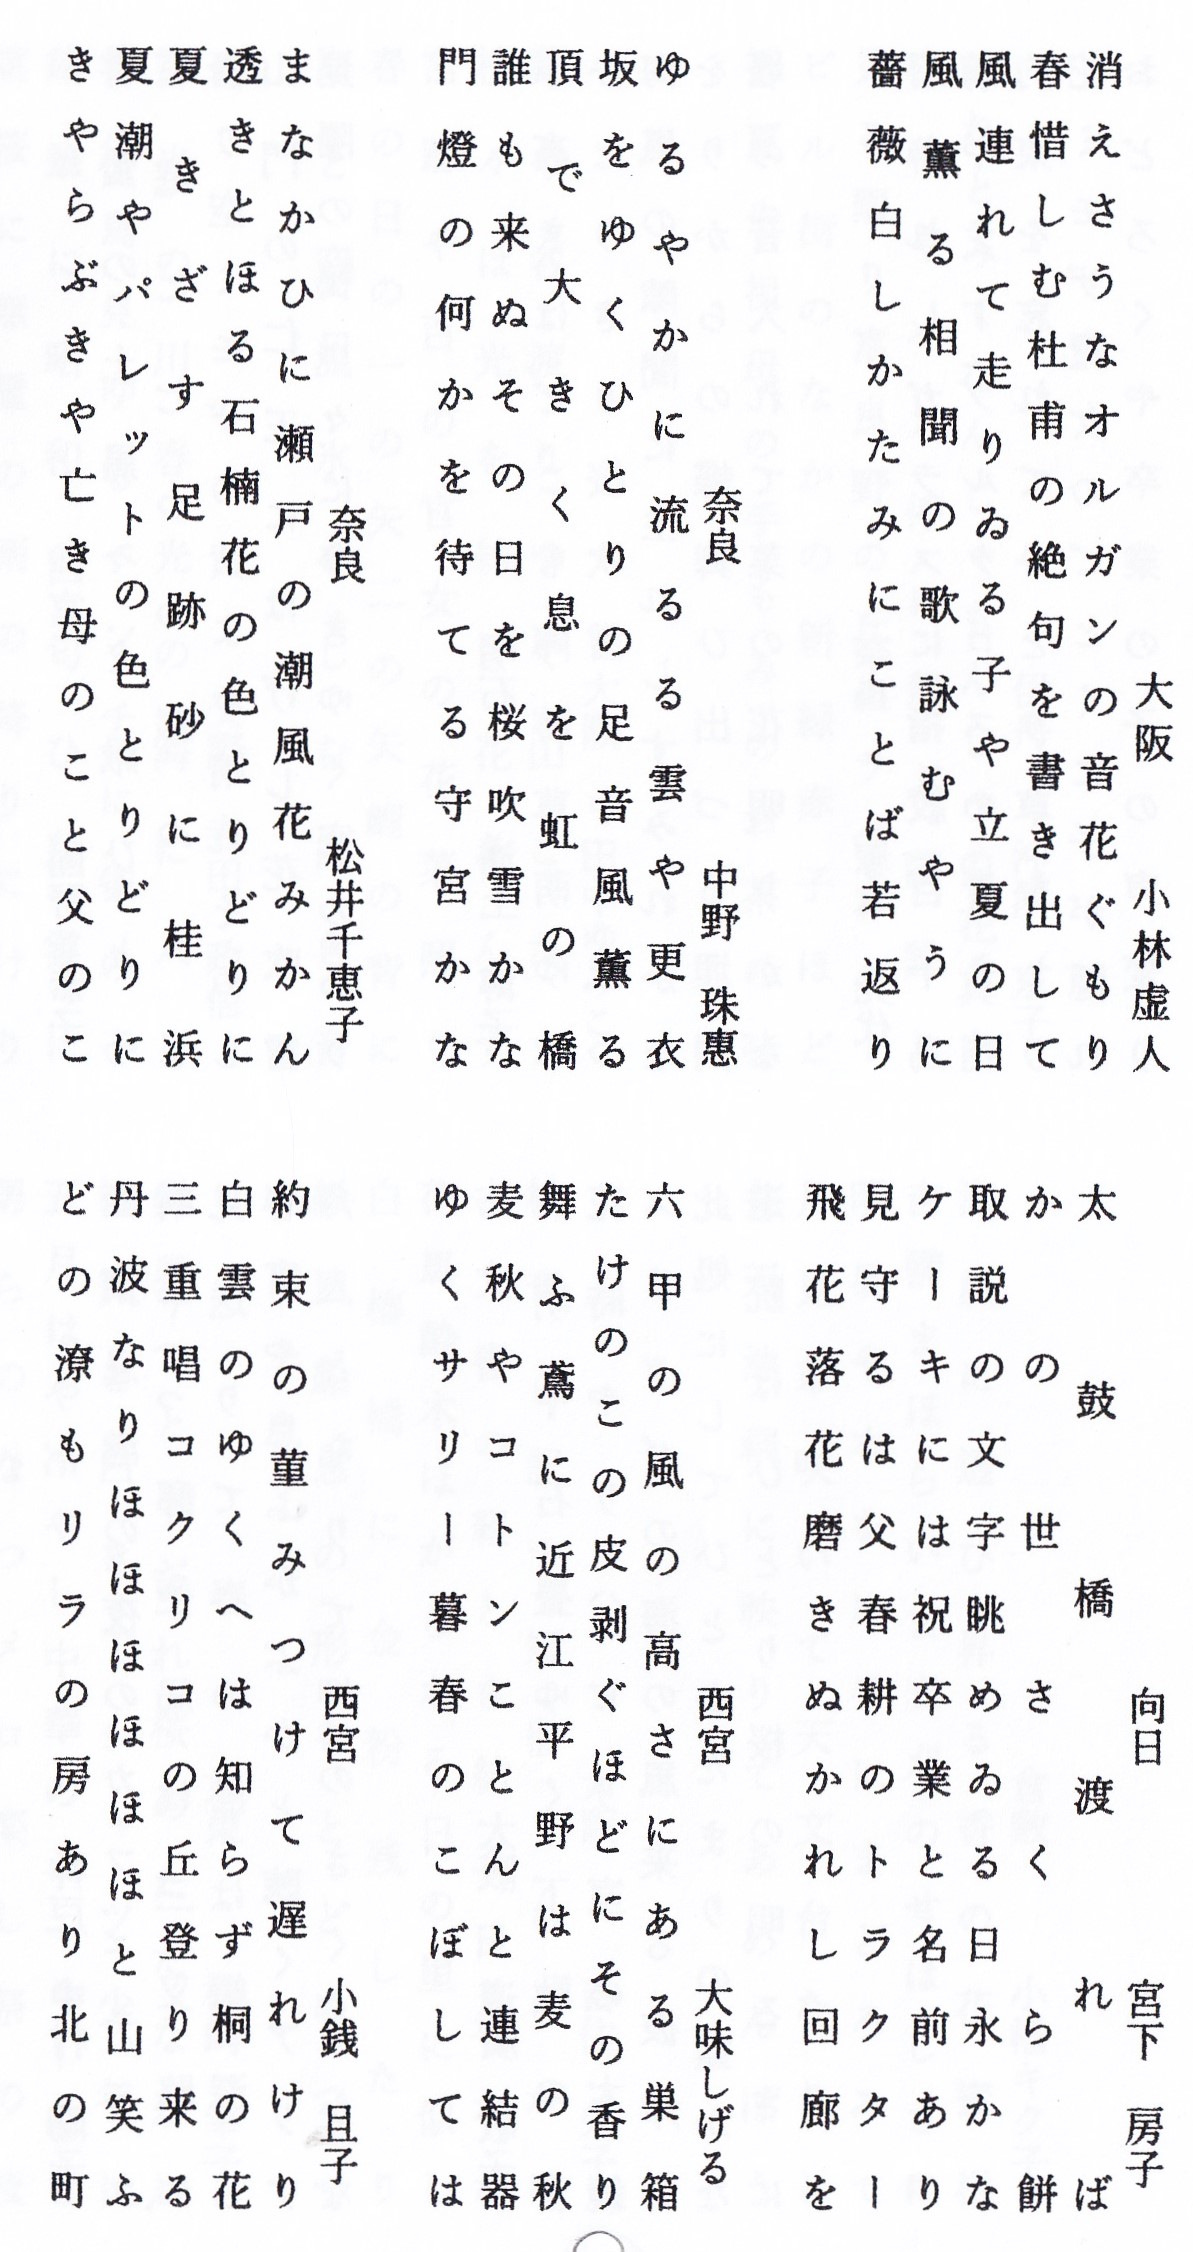 大阪　小林虚人
消えさうなオルガンの音花ぐもり
春惜しむ杜甫の絶句を書き出して
風連れて走りゐる子や立夏の日
風薫る相聞の歌詠むやうに
薔薇白しかたみにことば若返り
奈良　中野珠惠
ゆるやかに流るる雲や更衣
坂をゆくひとりの足音風薫る
頂で大きく息を虹の橋
誰も来ぬその日を桜吹雪かな
門燈の何かを待てる守宮かな
奈良　松井千恵子
まなかひに瀬戸の潮風花みかん
透きとほる石楠花の色とりどりに
夏きざす足跡砂に桂浜
夏潮やパレットの色とりどりに
きやらぶきや亡き母のこと父のこ
向日　宮下房子
太鼓橋渡れば
かの世さくら餅
取説の文字眺めゐる日永かな
ケーキには祝卒業と名前あり
見守るは父春耕のトラクター
飛花落花磨きぬかれし回廊を
西宮　大味しげる
六甲の風の高さにある巣箱
たけのこの皮剥ぐほどにその香り
舞ふ鳶に近江平野は麦の秋
麦秋やコトンことんと連結器
ゆくサリー暮春のこぼしては
西宮　小銭且子
約束の菫みつけて遅れけり
白雲のゆくへは知らず桐の花
三重唱コクリコの丘登り来る
丹波なりほほほほほほと山笑ふ
どの潦もリラの房あり北の町